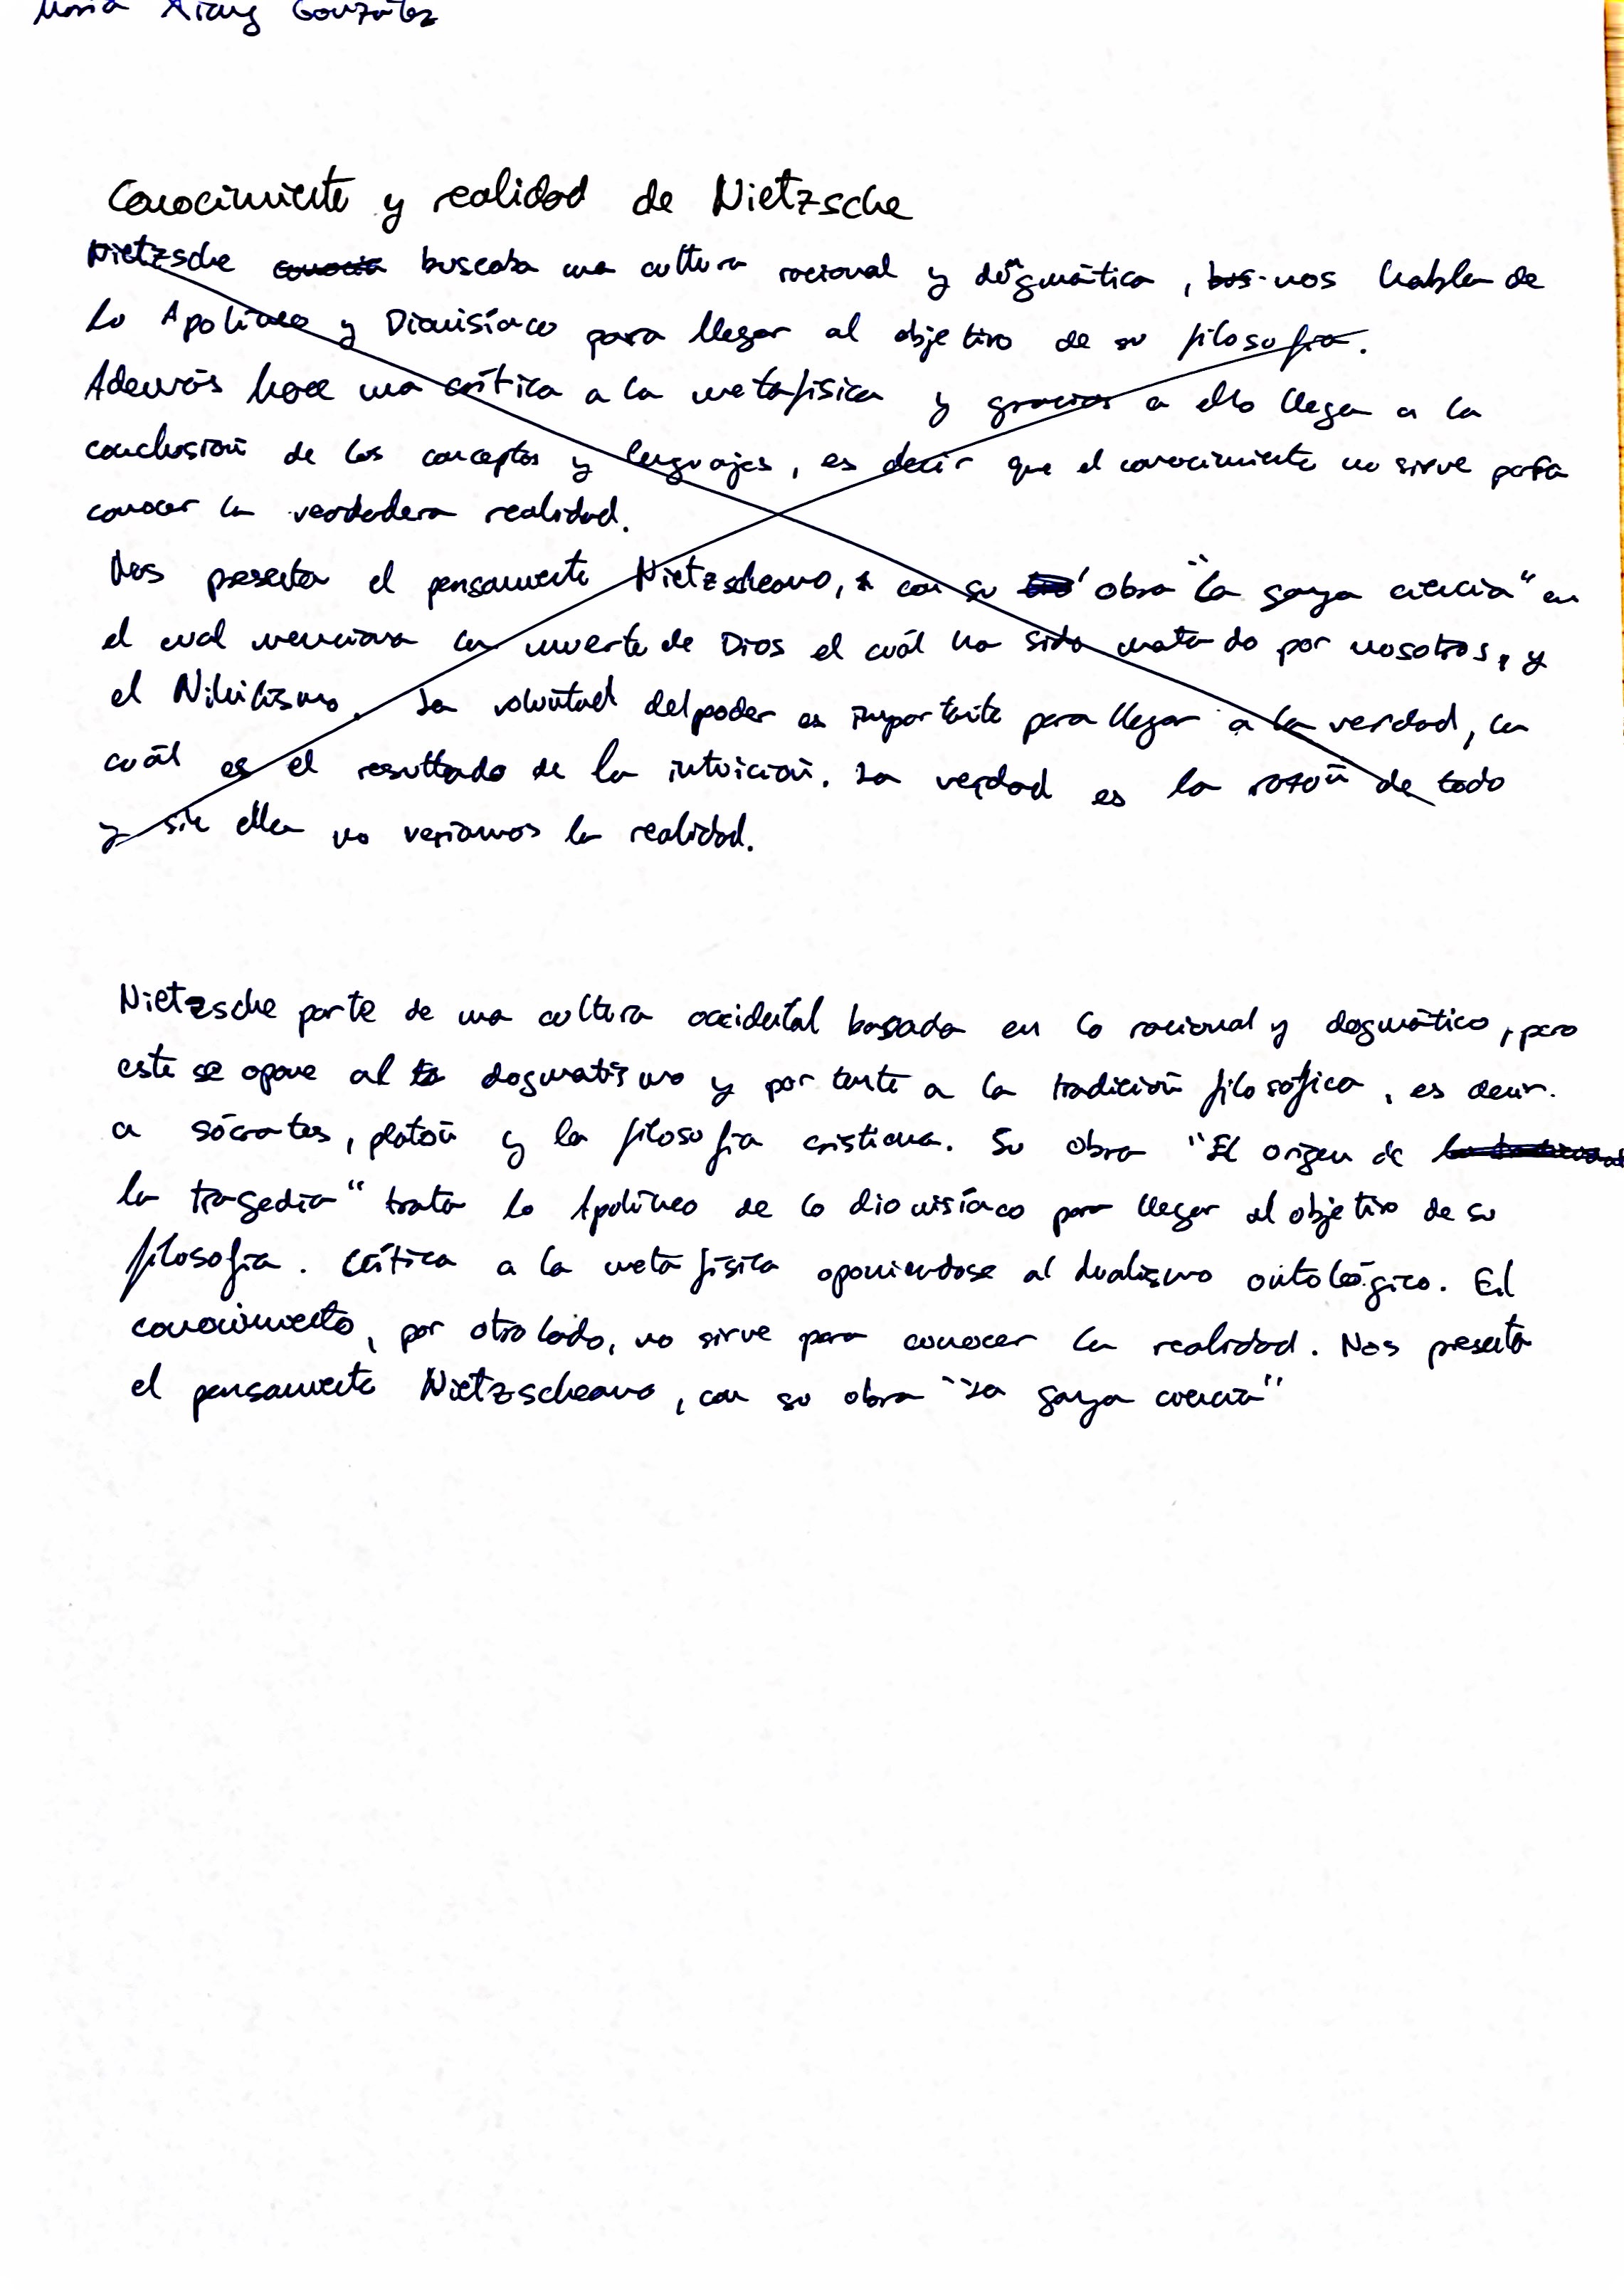 María Xiang González
Conocimiento y realidad de Nietzsche
Nietzsche conocía buscaba una cultura racional y dogmática, bus-nos habla de
lo Apolíneo y Dionisíaco para llegar al objetivo de su filosofía.
Además hace una crítica a la metafísica y gracias a ello llega a la
conclusión de los conceptos y lenguajes, es decir que el conocimiento no sirve para
conocer la verdadera realidad.
Nos presenta el pensamiento Nietzscheano, con su obra "la gaya ciencia" en
el cual menciona la muerte de Dios el cuál ha sido matado por nosotros, y
el Nihilismo. La voluntad del poder es importante para llegar a la verdad, la
cuál es el resultado de la intuición. La verdad es la razón de todo
y sin ella no veríamos la realidad.
Nietzsche parte de una cultura occidental basada en lo racional y dogmático, pero
este se opone al dogmatismo y por tanto a la tradición filosófica, es decir.
a sócrates, platón y la filosofía cristiana. Su obra "El origen de
la tragedia" trata lo Apolíneo de lo dionisíaco para llegar al objetivo de su
filosofía. Crítica a la metafísica oponiendose al dualismo ontológico. El
conocimiento, por otro lado, no sirve para conocer la realidad. Nos presenta
el pensamiento Nietzscheano, con su obra "La gaya ciencia"